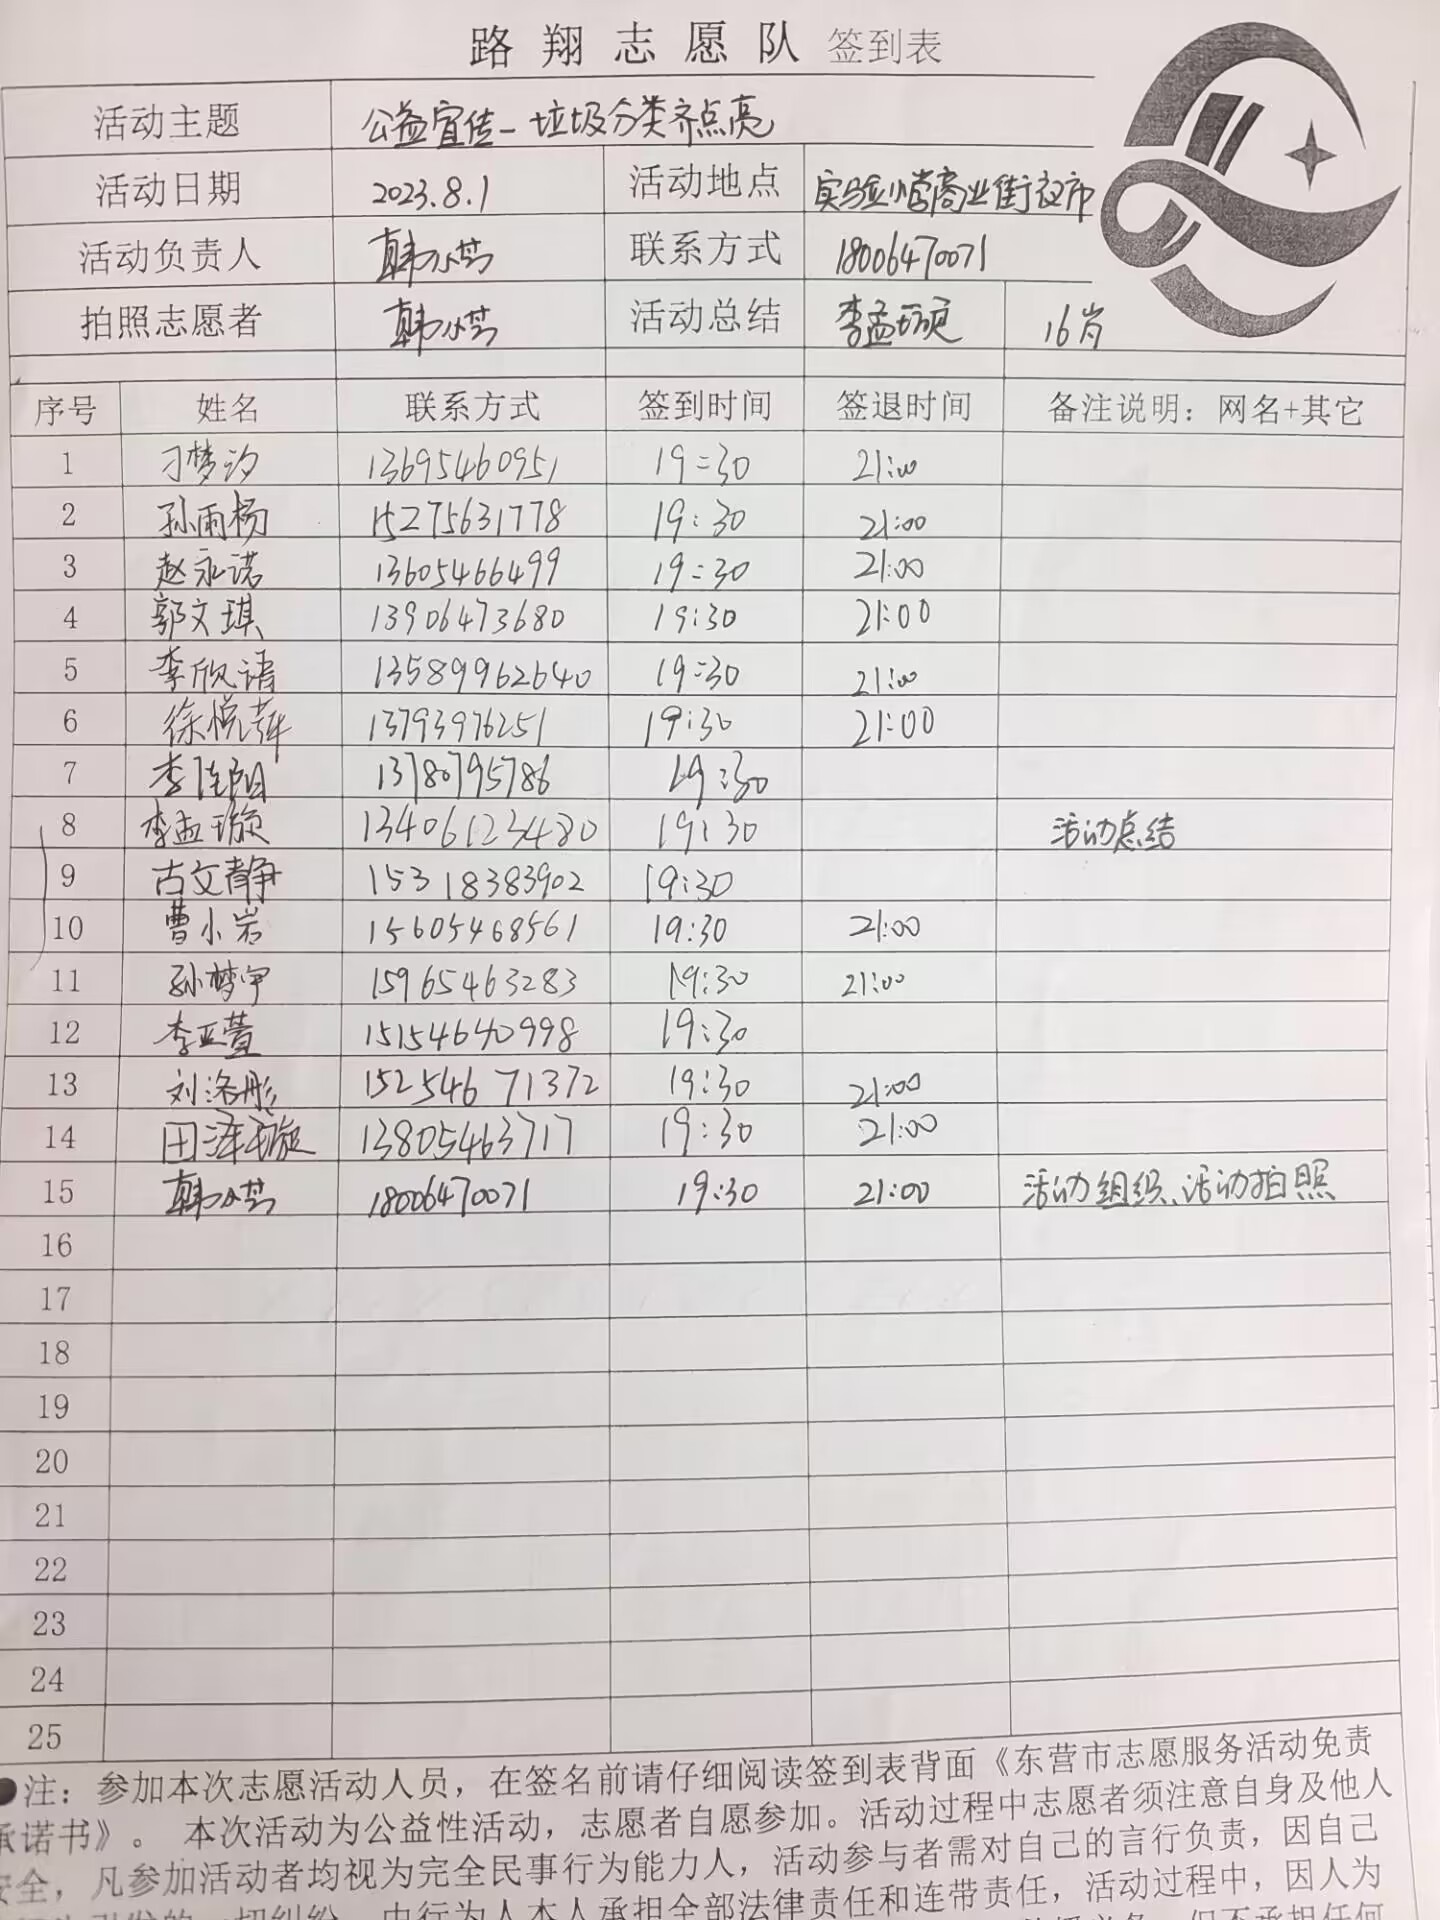 路翔志愿队 签到表
活动主题 公益宣传-垃圾分类齐点亮
活动日期 2023.8.1 活动地点 实验小营商业街夜市
活动负责人 韩小芸 联系方式 18006470071
拍照志愿者 韩小芸 活动总结 李孟璇 16岁
序号 姓名 联系方式 签到时间 签退时间 备注说明：网名+其它
1 刁梦汐 13695460951 19:30 21:00
2 孙雨杨 15275631778 19:30 21:00
3 赵永诺 13605466499 19:30 21:00
4 郭文琪 13906473680 19:30 21:00
5 李欣 13589962640 19:30 21:00
6 徐悦萍 13793976251 19:30 21:00
7 李佳阳 13780795786 19:30
8 李孟璇 13406123480 19:30 活动总结
9 古文静 15318383902 19:30
10 曹小岩 15605468561 19:30 21:00
11 孙梦宇 15965463283 19:30 21:00
12 李亚萱 15154640998 19:30
13 刘洛彤 15254671372 19:30 21:00
14 田泽璇 13805463717 19:30 21:00
15 韩小芸 18006470071 19:30 21:00 活动组织、活动拍照
16
17
18
19
20
21
22
23
24
25
●注：参加本次志愿活动人员，在签名前请仔细阅读签到表背面《东营市志愿服务活动免责
承诺书》。 本次活动为公益性活动，志愿者自愿参加。活动过程中志愿者须注意自身及他人
安全，凡参加活动者均视为完全民事行为能力人，活动参与者需对自己的言行负责，因自己
由行为人本人承担全部法律责任和连带责任，活动过程中，因人为